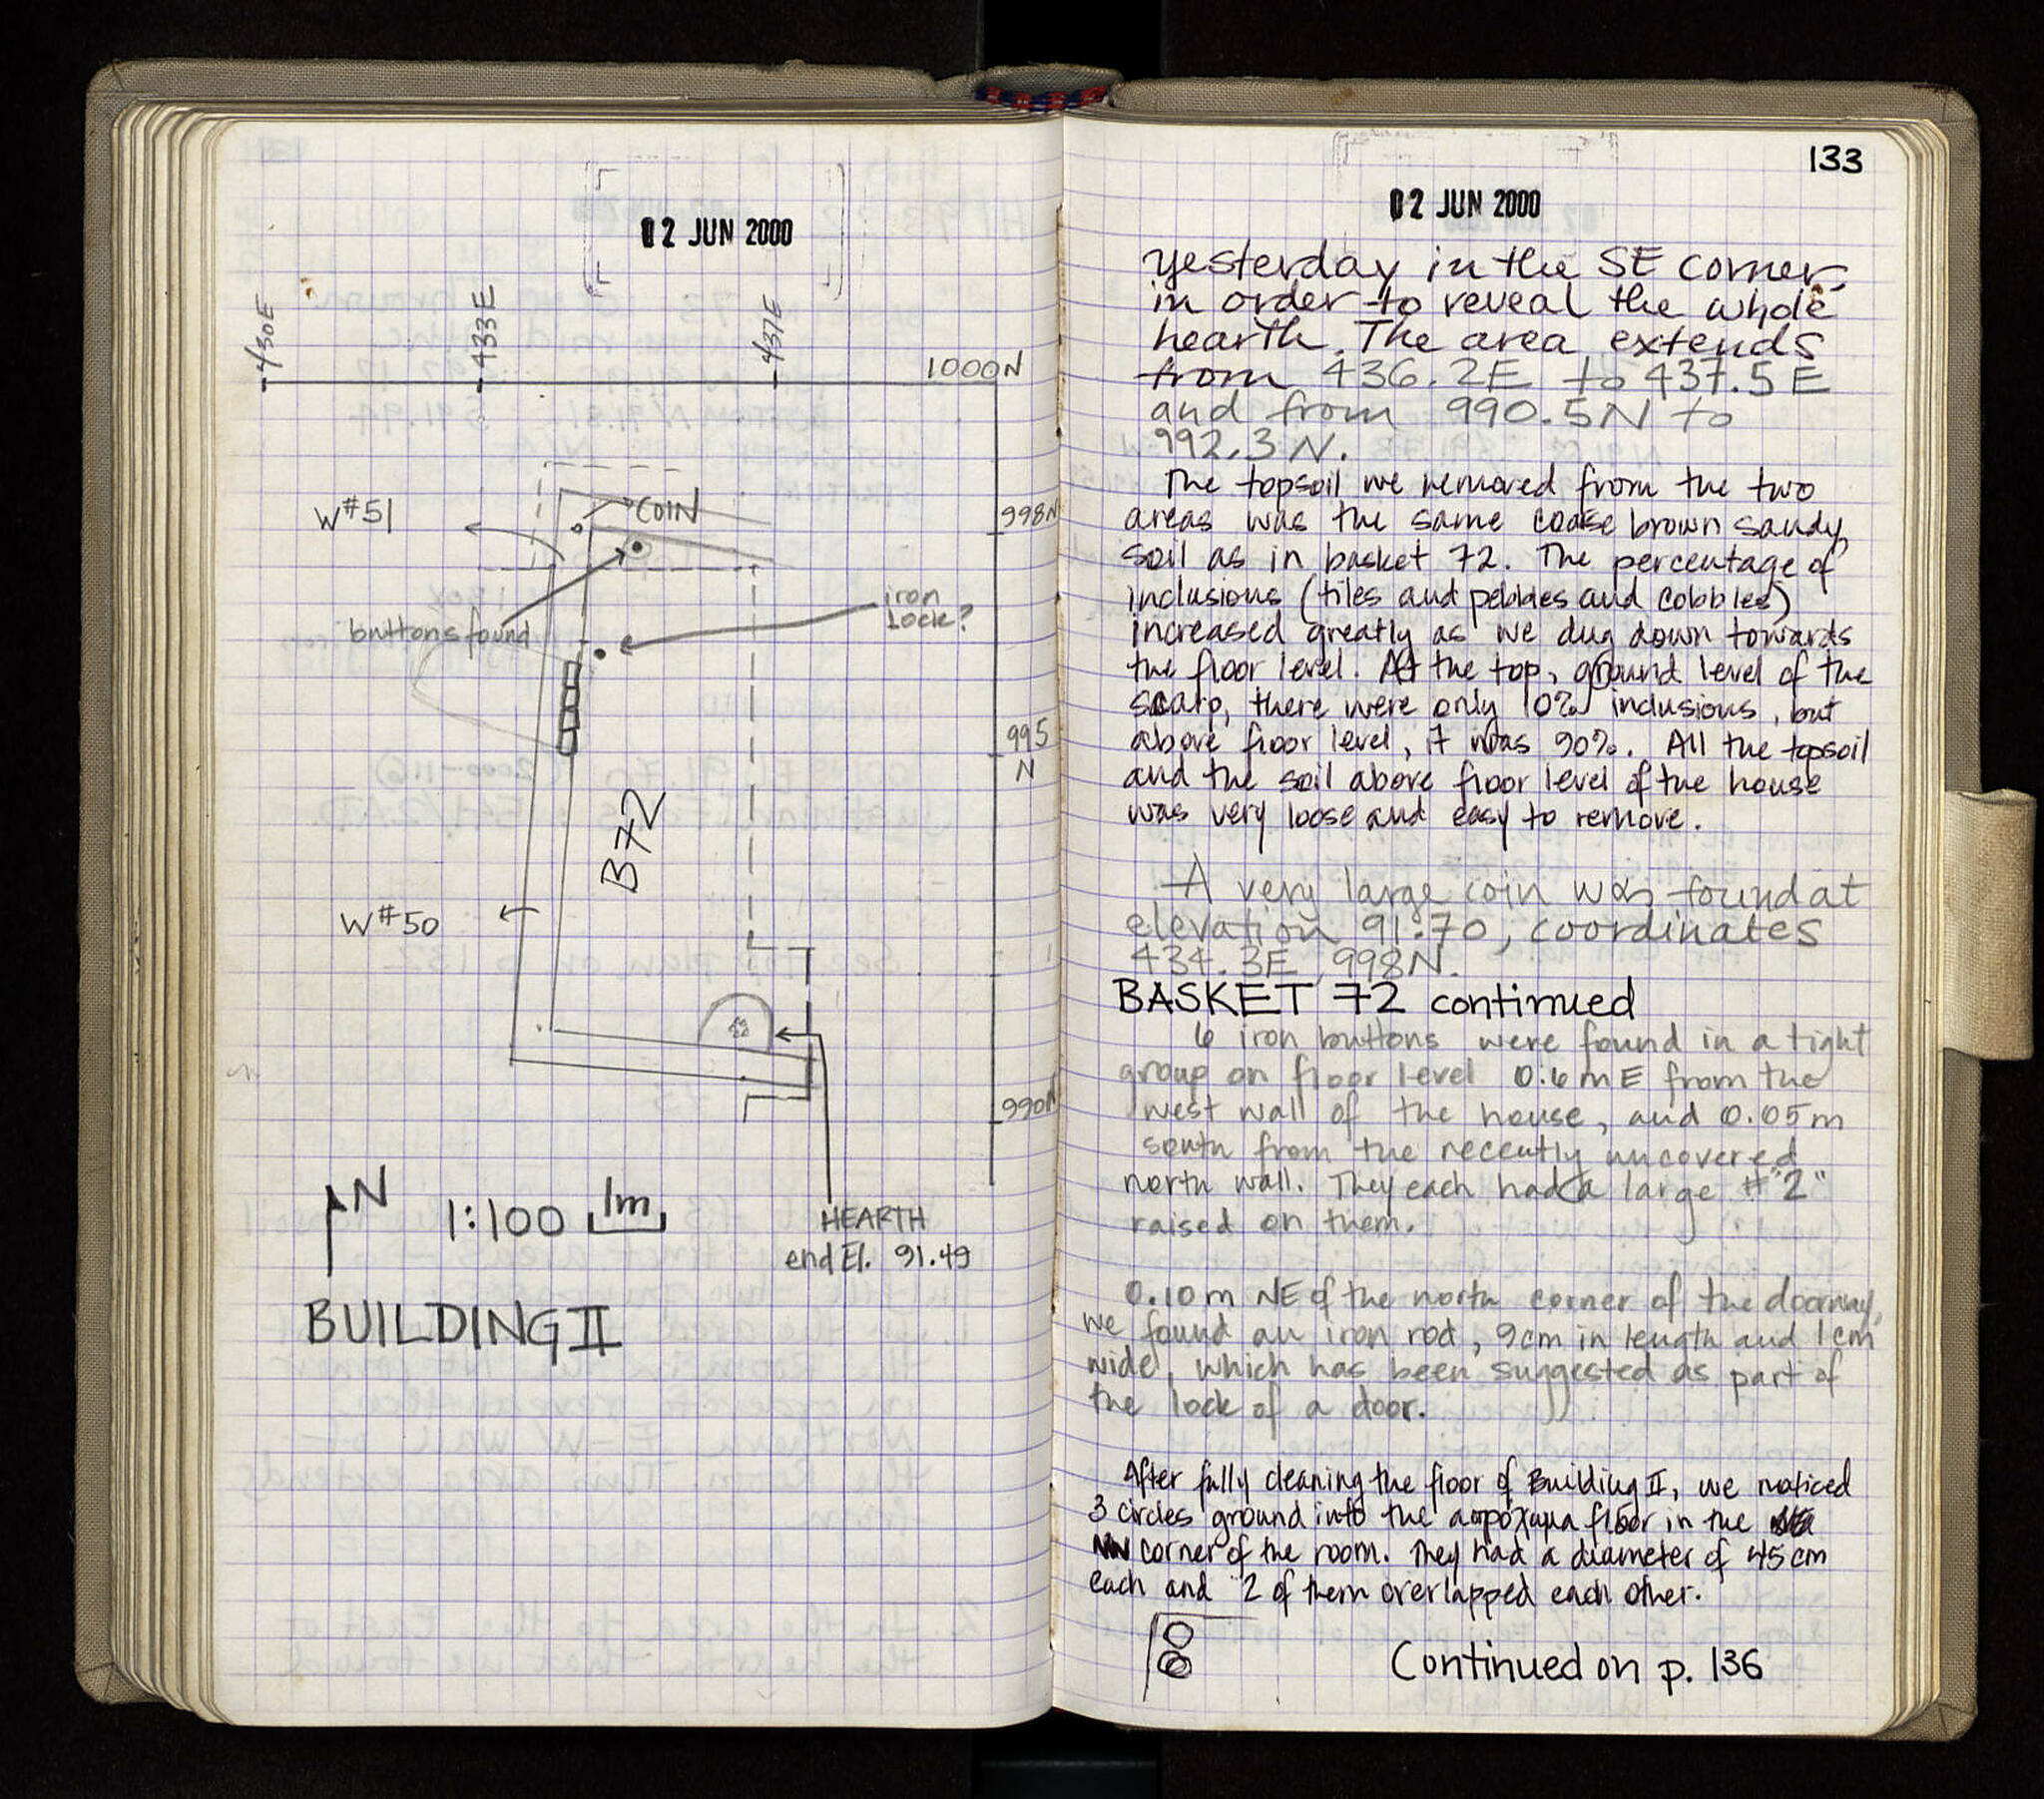 02 JUN 2000
430E
433E
437E
1000N
W#51
COIN
998N
iron
Lock?
buttons found
995
N
B72
W#50
990N
N
1:100 1m
HEARTH
end El. 91.49
BUILDING II
133
02 JUN 2000
yesterday in the SE corner,
in order to reveal the whole
hearth. The area extends
from 436.2E to 437.5E
and from 990.5N to
992.3N.
The topsoil we removed from the two
areas was the same coarse brown sandy
soil as in basket 72. The percentage of
inclusions (tiles and pebbles and cobbles)
increased greatly as we dug down towards
the floor level. At the top, ground level of the
scarp, there were only 10% inclusions, but
above floor level, it was 90%. All the topsoil
and the soil above floor level of the house
was very loose and easy to remove.
A very large coin was found at
elevation 91.70, coordinates
434.3E, 998N.
BASKET 72 continued
6 iron buttons were found in a tight
group on floor level 0.6 m E from the
west wall of the house, and 0.05 m
south from the recently uncovered
north wall. They each had a large #"2"
raised on them.
0.10 m NE of the north corner of the doorway,
we found an iron rod, 9cm in length and 1cm
wide, which has been suggested as part of
the lock of a door.
After fully cleaning the floor of Building II, we noticed
3 circles ground into the floor in the
NW corner of the room. They had a diameter of 45 cm
each and 2 of them overlapped each other.
Continued on p. 136